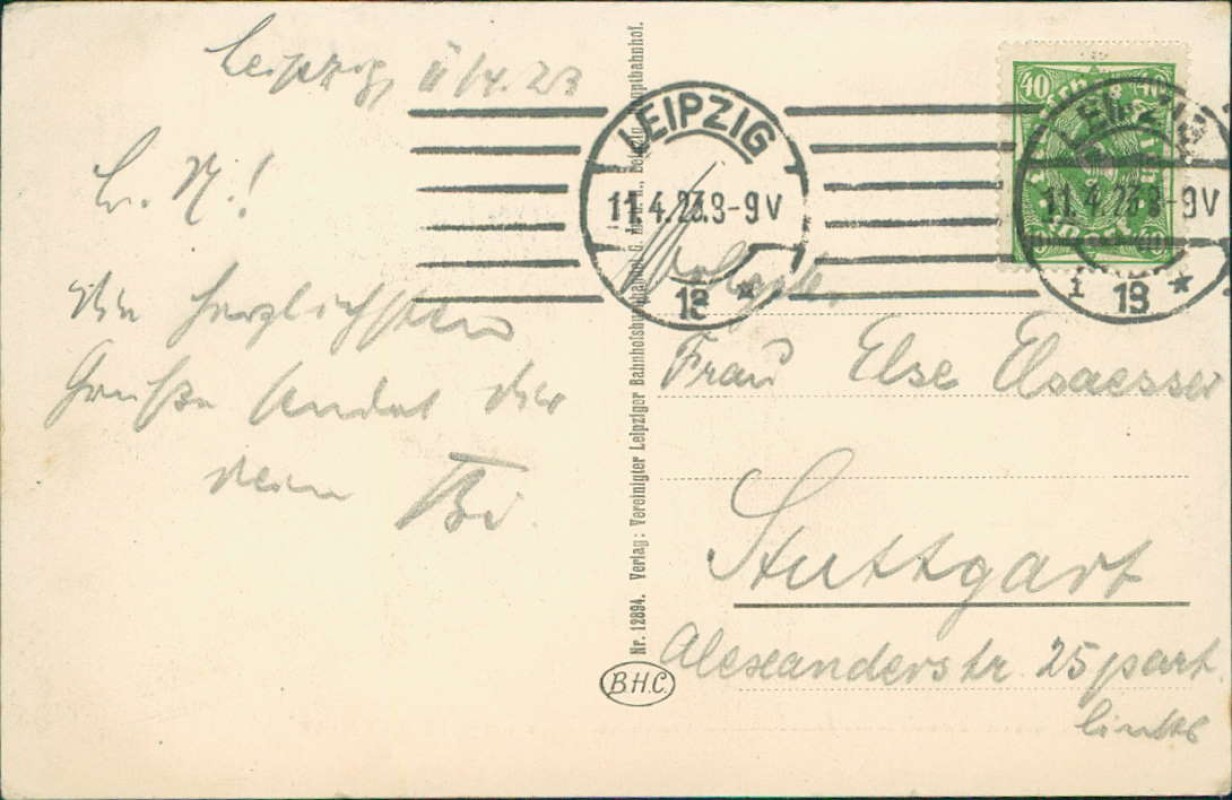 Leipzig, 11/4.23
L. M.!
Die herzlichsten
Grüße sendet dir
dein Bi.
LEIPZIG
11.4.23.8-9V
13 *
LEIPZIG
11.4.23.8-9V
1 13 *
40 40
Nr. 12894. Verlag: Vereinigter Leipziger Bahnhofsbuchhandel G. m. b. H., Leipzig, Hauptbahnhof.
B.H.C.
Frau Else Elsaesser
Stuttgart
Alexanderstr 25 part
links